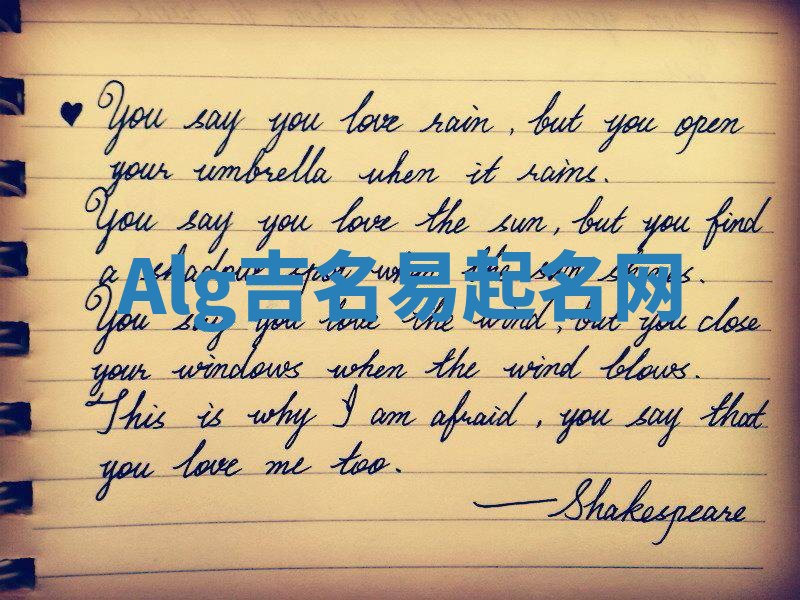 ♥ You say you love rain, but you open
your umbrella when it rains.
You say you love the sun, but you find
a shadow spot when the sun shines.
Alg吉名易起名网
You say you love the wind, but you close
your windows when the wind blows.
This is why I am afraid, you say that
you love me too.
— Shakespeare